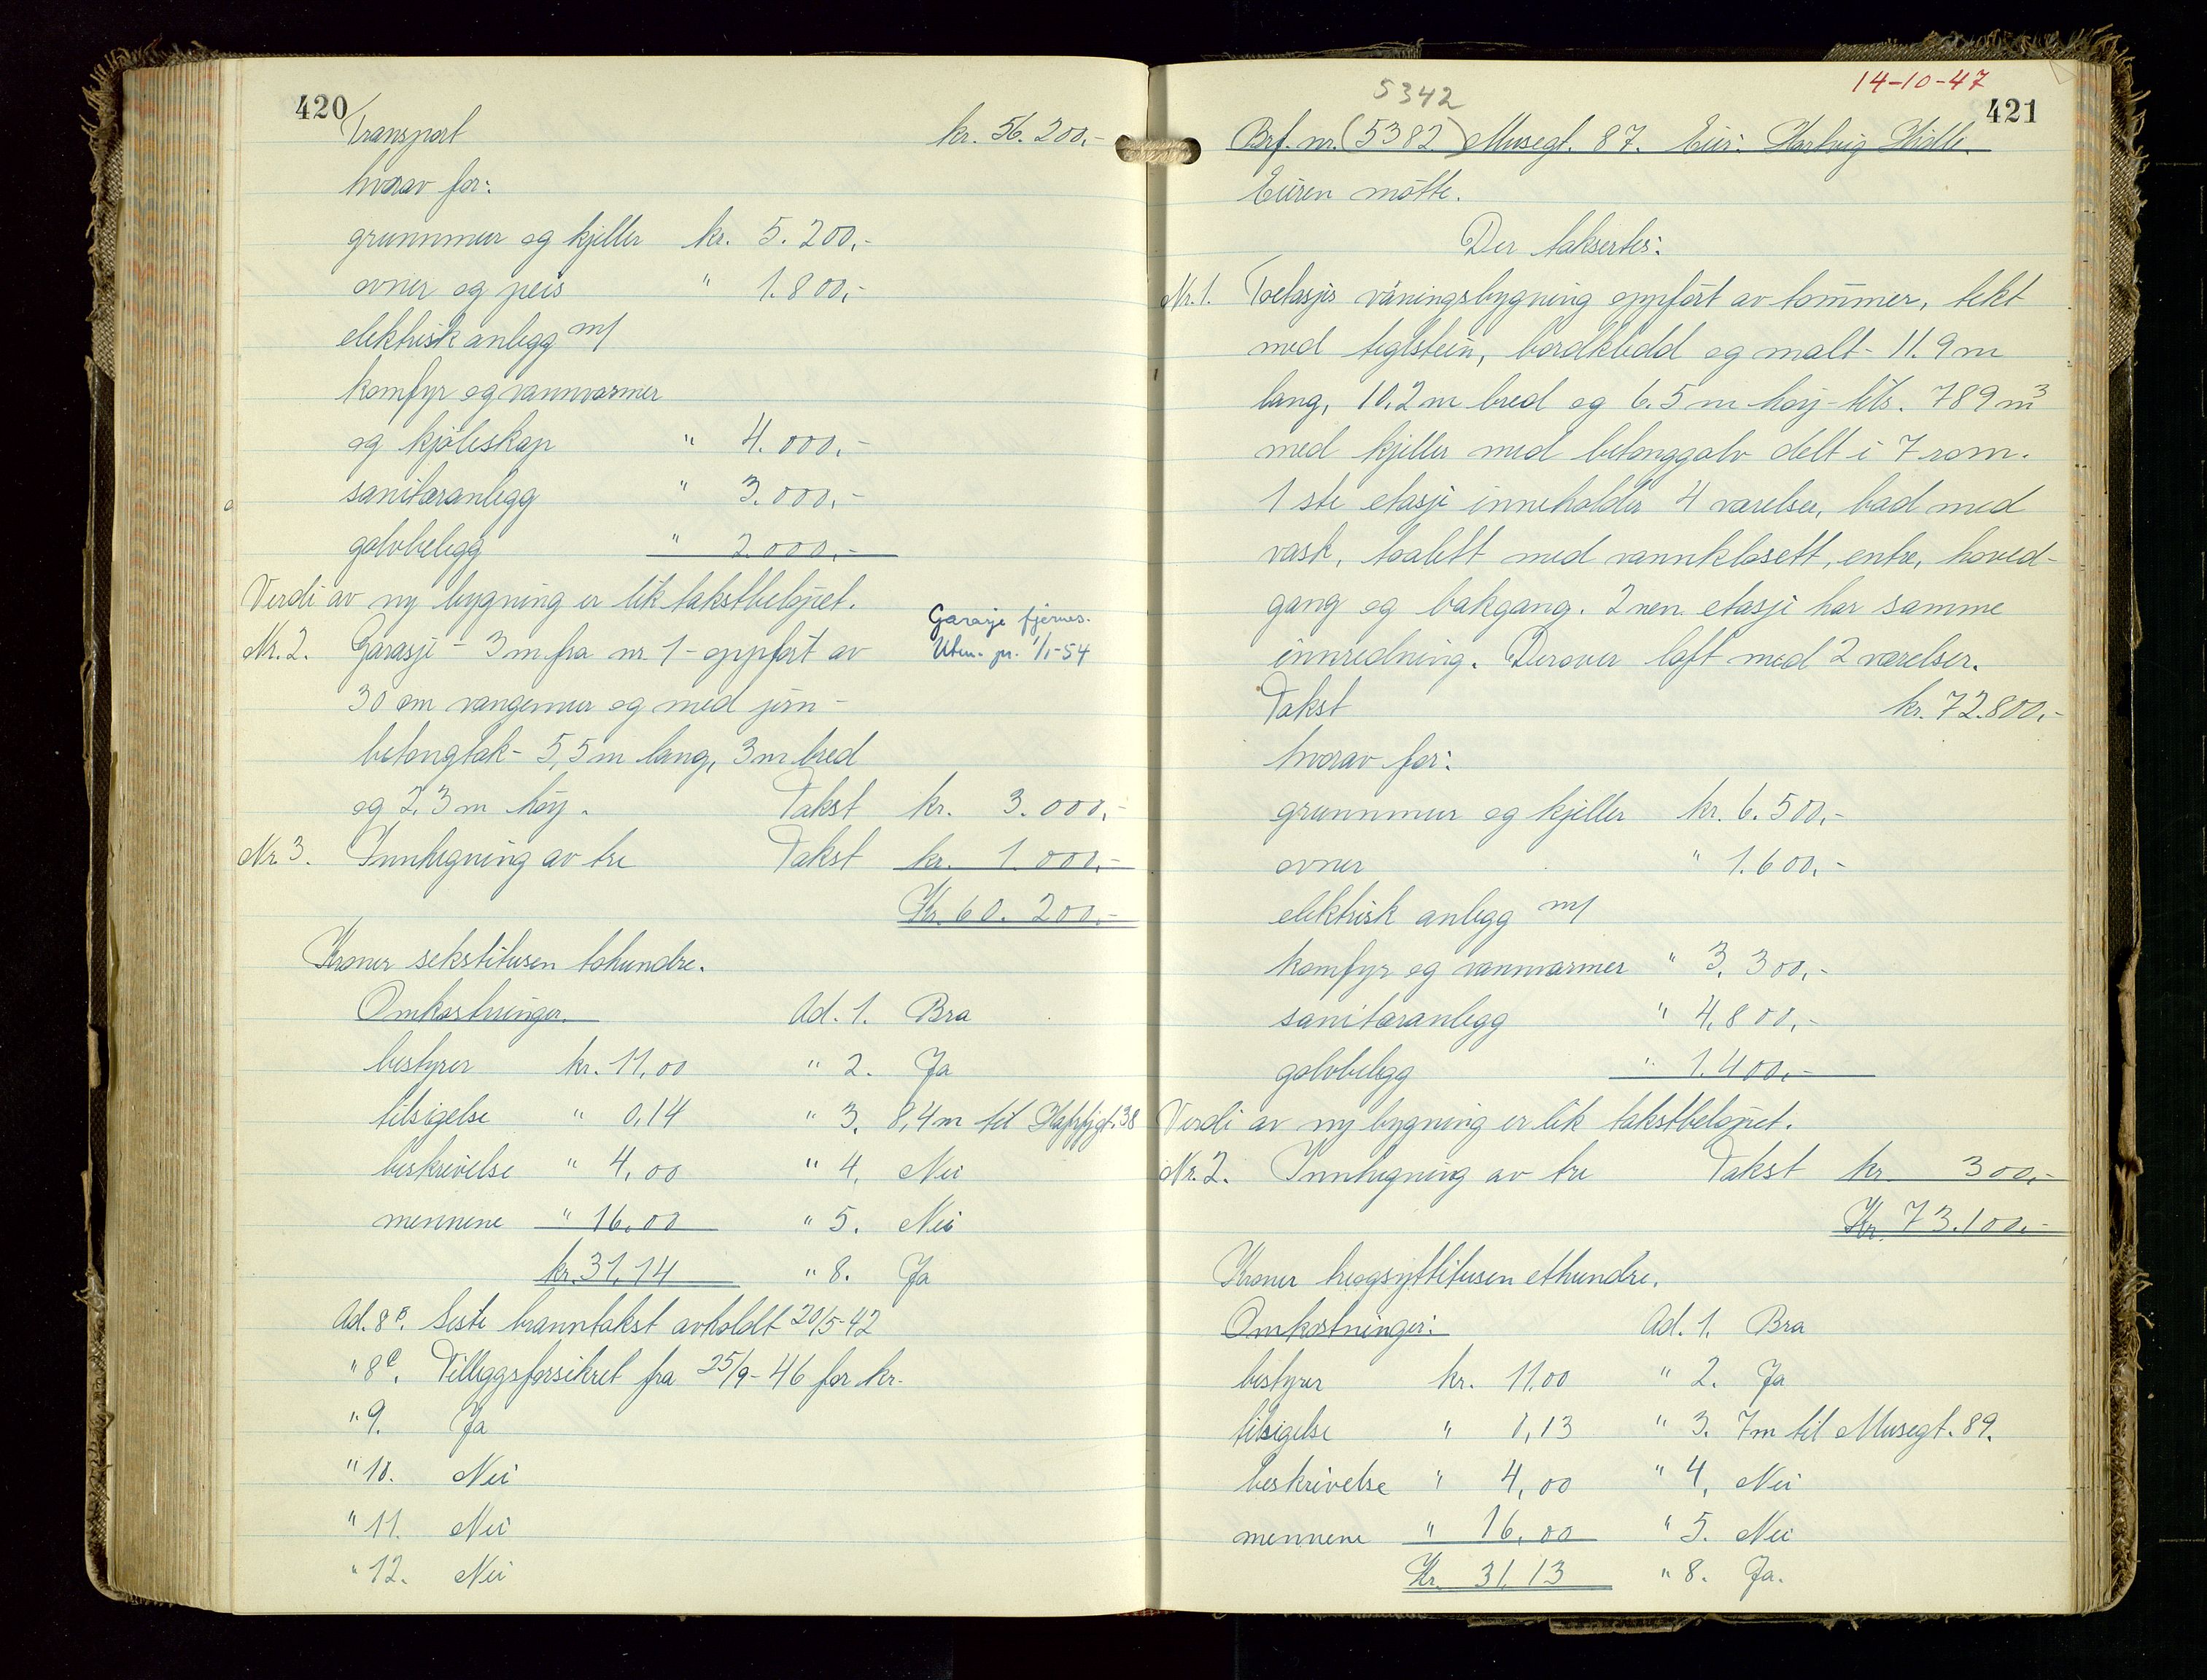 420
Transport kr. 56.200,-
hvorav for:
grunnmur og kjeller kr. 5.200,-
ovner og peis " 1.800,-
elektrisk anlegg m/
komfyr og vannvarmer
og kjøleskap " 4.000,-
sanitæranlegg " 3.000,-
golvbelegg " 2.000,-
Verdi av ny bygning er lik takstbeløpet.
Garasje fjernes.
Utm. pr. 1/1-54
Nr. 2. Garasje - 3 m fra nr. 1 - oppført av
30 cm vangemur og med jern-
betongtak - 5,5 m lang, 3 m bred
og 2,3 m høy. Takst kr. 3.000,-
Nr. 3. Innhegning av tre Takst kr. 1.000,-
Kr. 60.200,-
Kroner sekstitusen tohundre.
Omkostninger. Ad. 1. Bra
bestyrer kr. 11,00 " 2. Ja
tilsigelse " 0,14 " 3. 8,4 m til 38
beskrivelse " 4,00 " 4. Nei
mennene " 16,00 " 5. Nei
kr. 31,14 " 8. Ja
Ad. 8B. Siste branntakst avholdt 20/5-42
" 8C. Tilleggsforsikret fra 25/9-46 for kr.
" 9. Ja
" 10. Nei
" 11. Nei
" 12. Nei
14-10-47
421
5342
Brf. nr. (5382) Musegt. 87. Eier: Hartvig
Eieren møtte.
Der taksertes:
Nr. 1. Toetasjes våningsbygning oppført av tømmer, tekt
med teglstein, bordkledd og malt - 11.9 m
lang, 10.2 m bred og 6.5 m høy - tils. 789 m3
med kjeller med betonggolv delt i 7 rom.
1ste etasje inneholder 4 værelser, bad med
vask, toalett med vannklosett, entre, hoved-
gang og bakgang. 2nen etasje har samme
innredning. Derover loft med 2 værelser.
Takst kr. 72.800,-
hvorav for:
grunnmur og kjeller kr. 6.500,-
ovner " 1.600,-
elektrisk anlegg m/
komfyr og vannvarmer " 3.300,-
sanitæranlegg " 4.800,-
golvbelegg " 1.400,-
Verdi av ny bygning er lik takstbeløpet.
Nr. 2. Innhegning av tre Takst kr. 300,-
Kr. 73.100,-
Kroner treogsyttitusen etthundre.
Omkostninger: Ad. 1. Bra
bestyrer kr. 11,00 " 2. Ja
tilsigelse " 1,13 " 3. 7 m til Musegt. 89.
beskrivelse " 4,00 " 4. Nei
mennene " 16,00 " 5. Nei
Kr. 31,13 " 8. Ja.